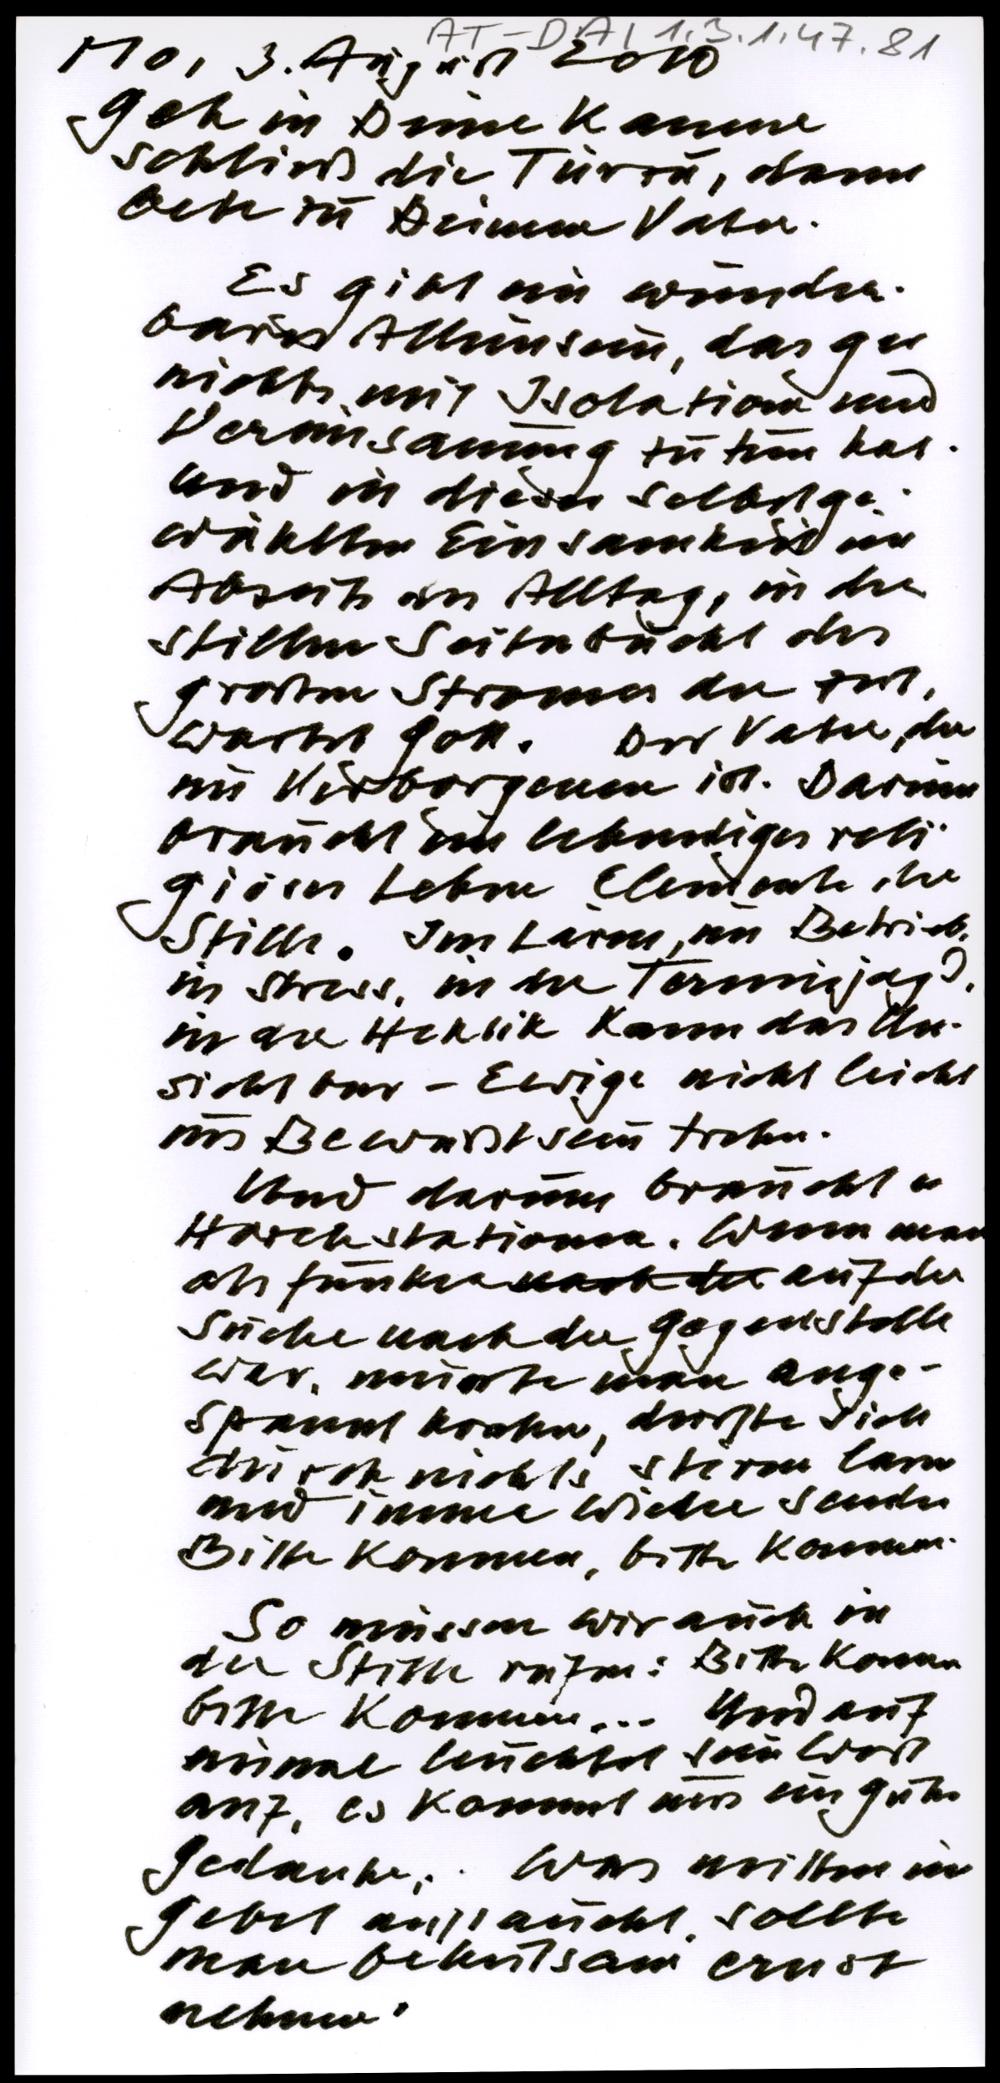 AT-DAI 1.3.1.47.81
Mo, 3. August 2010
Geh in Deine Kammer
schließ die Türzu, dann
bete zu Deinem Vater.
Es gibt ein wunder-
bares Alleinsein, das gar
nichts mit Isolation und
Vereinsamung zu tun hat.
Und in dieser selbstge-
wählten Einsamkeit im
Abseits im Alltag, in der
stillen Seitenbucht des
großen Stromes der Zeit,
wartet Gott. Der Vater, der
im Verborgenen ist. Darum
braucht ein lebendiges reli-
giöses Leben Elemente der
Stille. Im Lärm, im Betrieb,
im Stress, in der Terminjagd,
in der Hektik kann das Un-
sichtbar – Ewige nicht leicht
ins Bewußtsein treten.
Und darum braucht es
Horchstationen. Wenn man
als Funker nach der auf der
Suche nach der Gegenstelle
war, mußte man ange-
spannt horchen, durfte sich
durch nichts stören lassen
und immer wieder senden
Bitte kommen, bitte kommen.
So müssen wir auch in
der Stille rufen: Bitte kommen
bitte kommen... Und auf
einmal leuchtet sein Wort
auf, es kommt uns ein guter
Gedanke. Was mitten im
Gebet auftaucht, sollte
man behutsam ernst
nehmen.